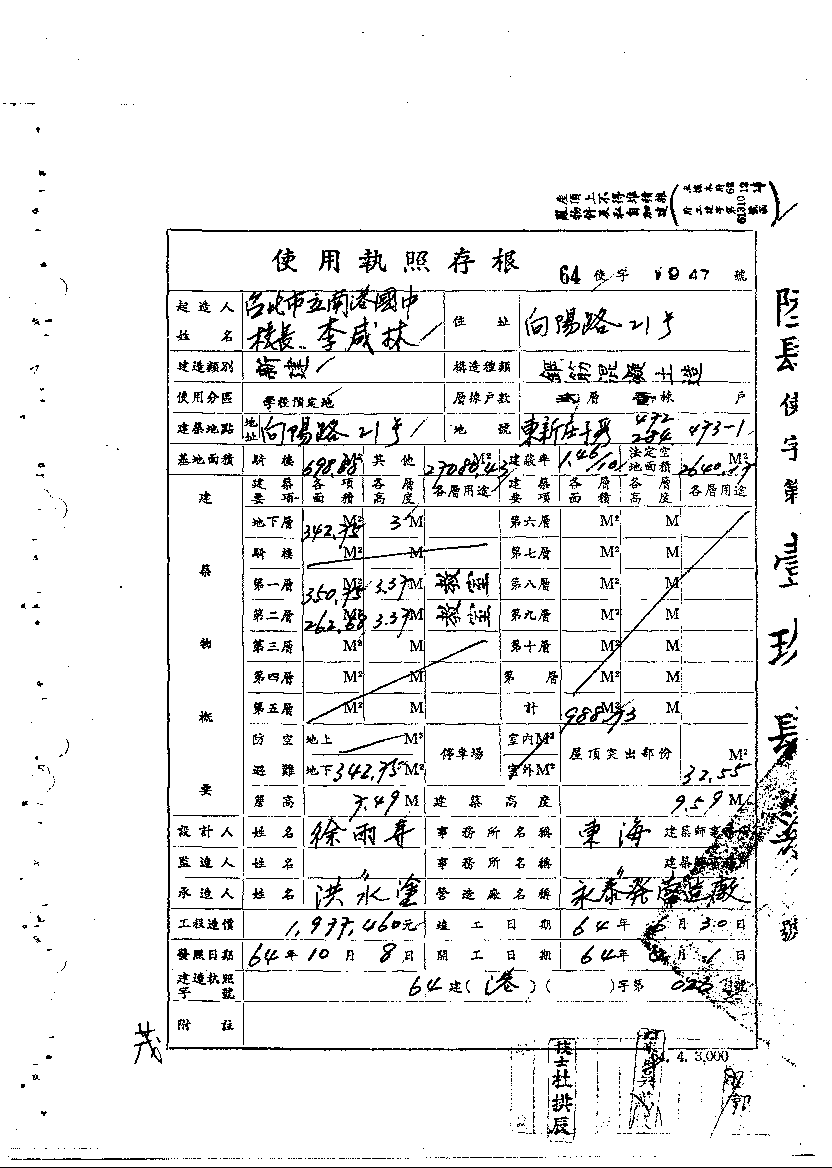 屋頂上不得堆積雜
物料及私自加建
使用執照存根
64 使字 1947 號
起造人姓名 台北市立南港國中校長 李咸林 住址 向陽路21号
建造類別 構造種類 鋼筋混凝土造
使用分區 學校預定地 層棟戶數 層 棟 戶
建築地點 地址 向陽路21号 地號 東新庄子 472 473-1
284
基地面積 騎樓 698.88 M² 其他 27080.43 M² 建蔽率 1.46/10 法定空地面積 M²
建築要項 各項面積 各層高度 各層用途 建築要項 各層面積 各層高度 各層用途
建築物概要
地下層 342.75 M² 3 M 第六層 M² M
騎樓 M² M 第七層 M² M
第一層 350.75 M² 3.37 M 教室 第八層 M² M
第二層 262.68 M² 3.37 M 教室 第九層 M² M
第三層 M² M 第十層 M² M
第四層 M² M 第 層 M² M
第五層 M² M 計 988.73 M² M
防空避難 地上 M² 停車場 室內 M² 屋頂突出部份 M²
地下 342.75 M² 室外 M² 32.55
簷高 7.49 M 建築高度 9.59 M
設計人 姓名 事務所名稱 東海 建築師事務所
監造人 姓名 〃 事務所名稱 〃 建築師事務所
承造人 姓名 洪永塗 營造廠名稱 永泰發營造廠
工程造價 1,977,460元 竣工日期 64年6月30日
發照日期 64年10月8日 開工日期 64年 月1日
建造執照字號 64 建(港)( )字第 023 號
附註
茂
4. 3,000
技士杜拱辰
使字第
號